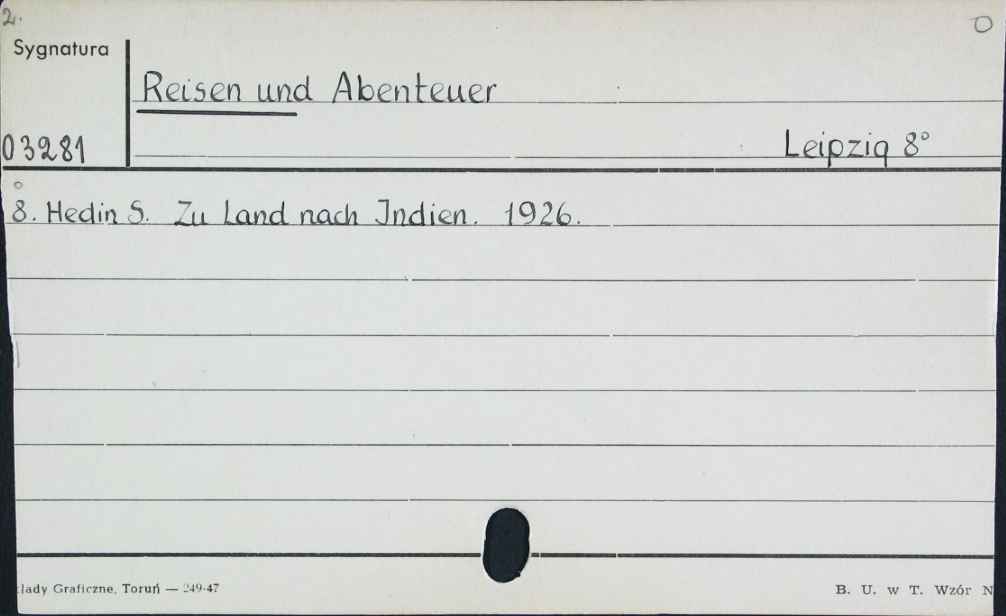 2.
O
Sygnatura
Reisen und Abenteuer
03281
Leipzig 8°
8. Hedin S. Zu Land nach Indien. 1926.
łady Graficzne, Toruń — 249-47
B. U. w T. Wzór N